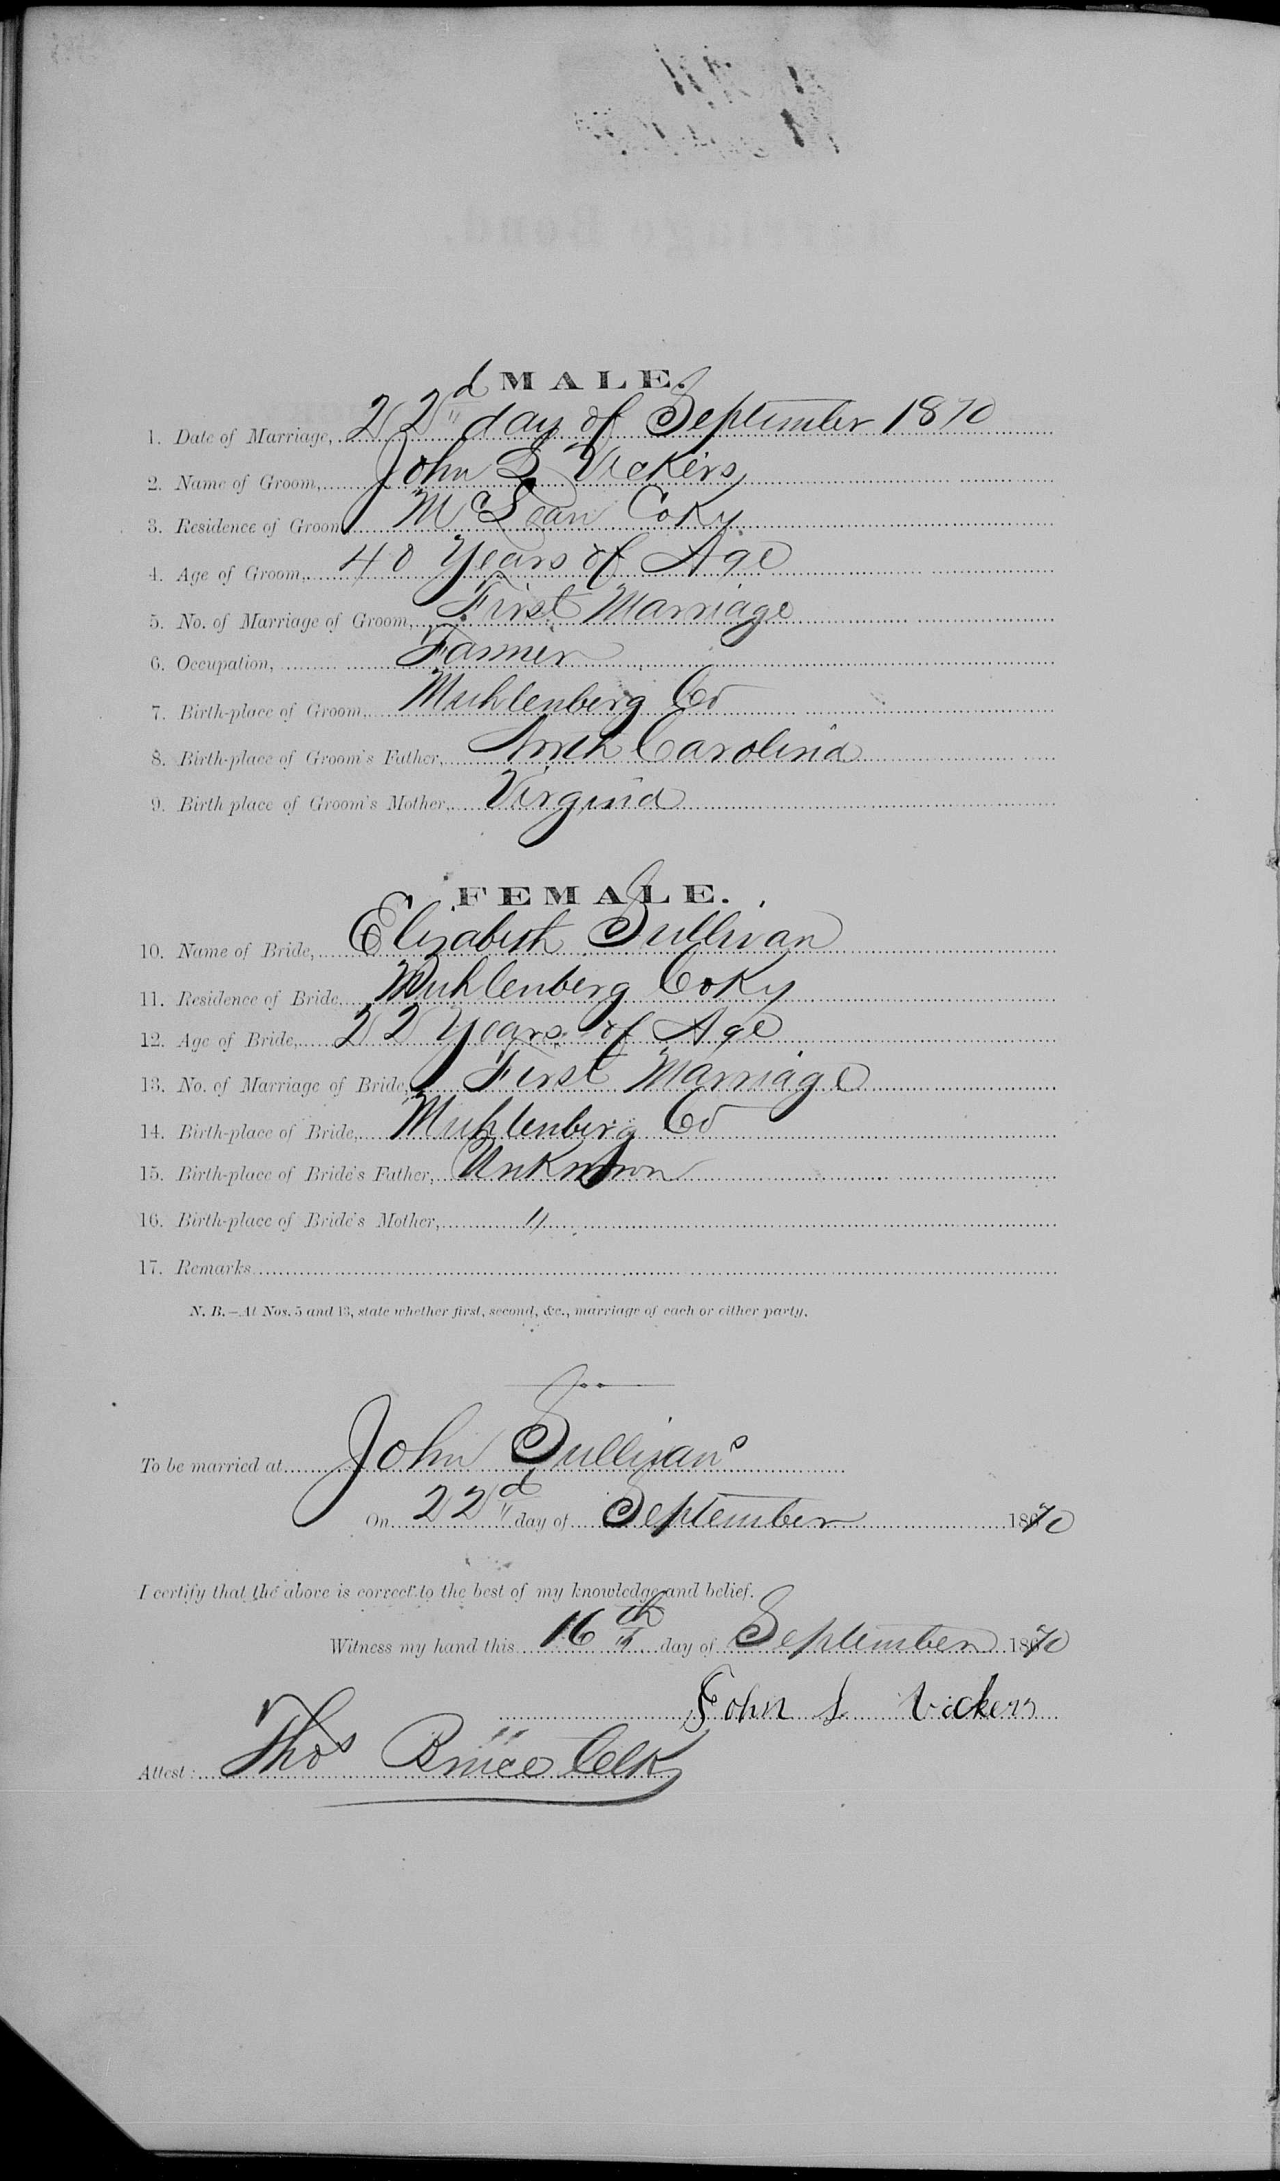 MALE.
1. Date of Marriage, 22d day of September 1870
2. Name of Groom, John S Vickers
3. Residence of Groom McLean Co Ky
4. Age of Groom, 40 Years of Age
5. No. of Marriage of Groom, First Marriage
6. Occupation, Farmer
7. Birth-place of Groom, Muhlenberg Co
8. Birth-place of Groom's Father, North Carolina
9. Birth place of Groom's Mother, Virginia
FEMALE.
10. Name of Bride, Elizabeth Sullivan
11. Residence of Bride Muhlenberg Co Ky
12. Age of Bride, 22 Years of Age
13. No. of Marriage of Bride, First Marriage
14. Birth-place of Bride, Muhlenberg Co
15. Birth-place of Bride's Father, Unknown
16. Birth-place of Bride's Mother, "
17. Remarks
N. B.—At Nos. 5 and 13, state whether first, second, &c., marriage of each or either party.
To be married at John Sullivans
On 22d day of September 1870
I certify that the above is correct to the best of my knowledge and belief.
Witness my hand this 16th day of September 1870
John S Vickers
Attest: Thos Bruce Clk